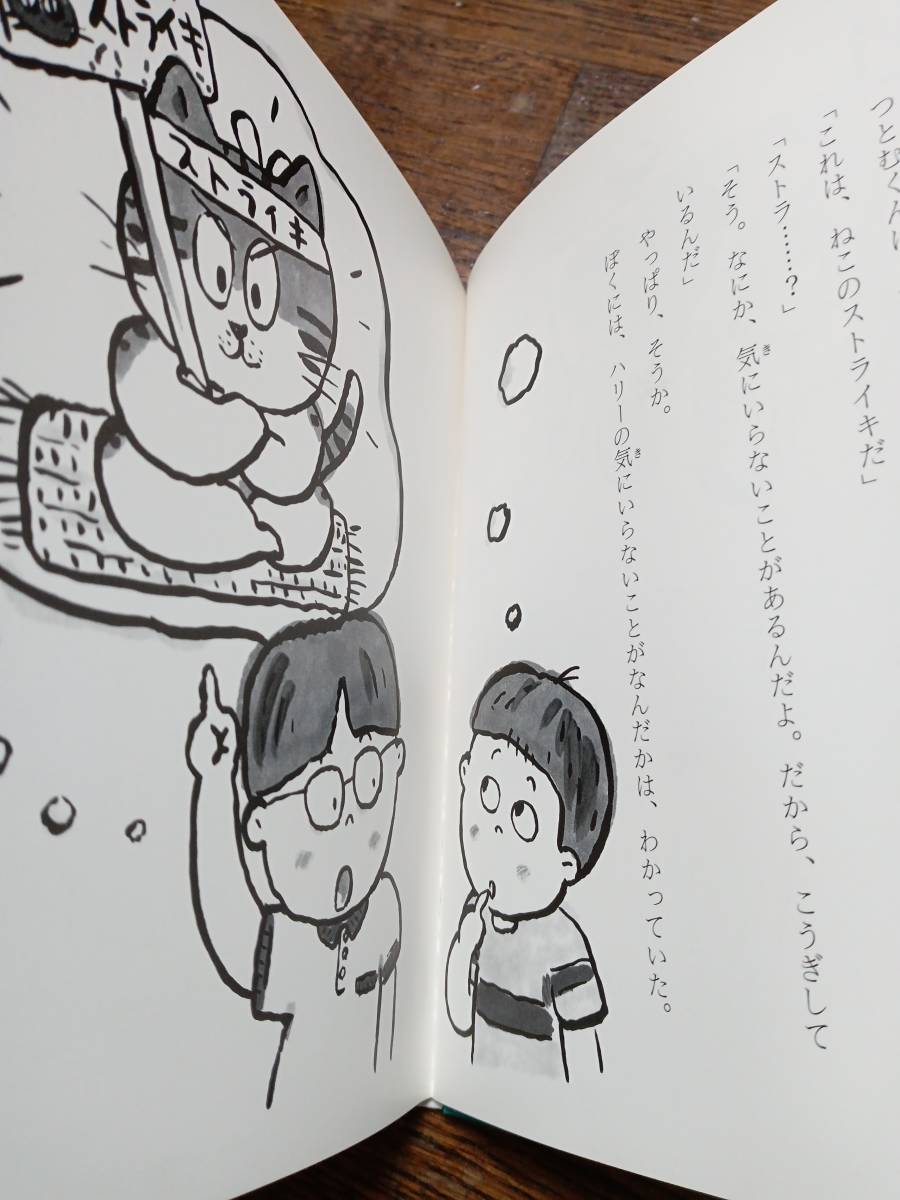 つとむくんは
「これは、ねこのストライキだ」
「ストラ……？」
「そう。なにか、気にいらないことがあるんだよ。だから、こうぎして
いるんだ」
やっぱり、そうか。
ぼくには、ハリーの気にいらないことがなんだかは、わかっていた。
ストライキ
ストライキ